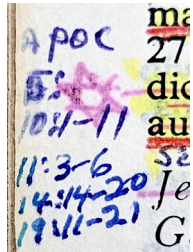 APOC
10:1-11
11:3-6
14:14-20
19:11-21
ma
27
dic
au
Je
G